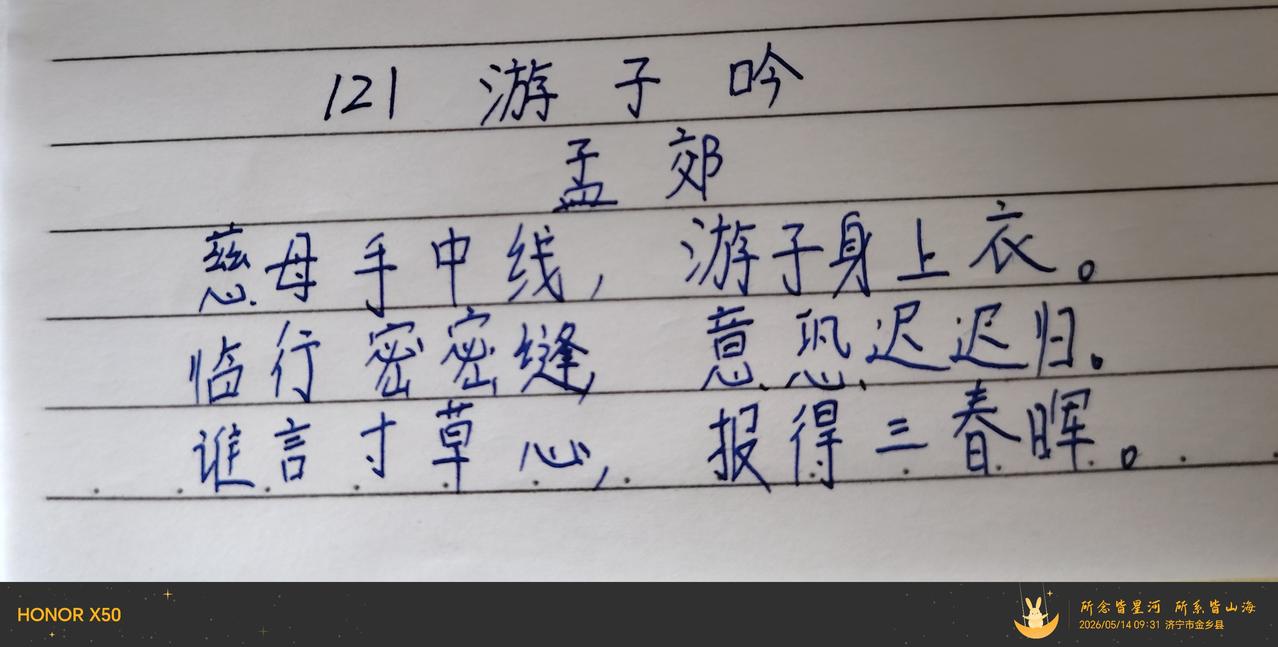 121 游子吟
孟郊
慈母手中线，游子身上衣。
临行密密缝，意恐迟迟归。
谁言寸草心，报得三春晖。
HONOR X50
所念皆星河 所系皆山海
2026/05/14 09:31 济宁市金乡县